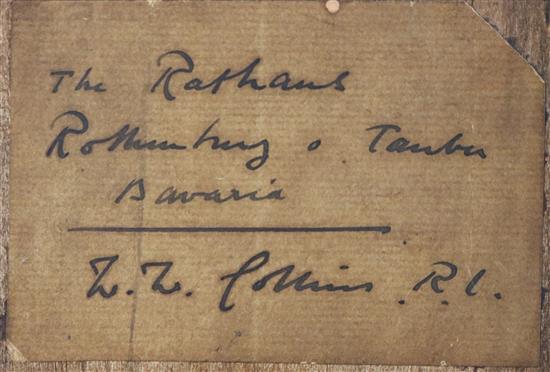 The Rathaus
Rothenburg o. Tauber
Bavaria
W. W. Collins. R.I.